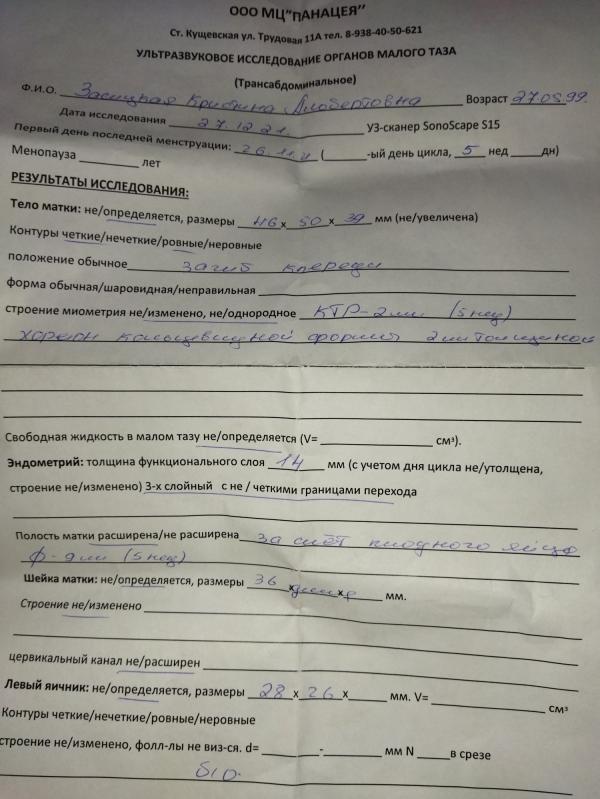 ООО МЦ"ПАНАЦЕЯ"
Ст. Кущевская ул. Трудовая 11А тел. 8-938-40-50-621
УЛЬТРАЗВУКОВОЕ ИССЛЕДОВАНИЕ ОРГАНОВ МАЛОГО ТАЗА
(Трансабдоминальное)
Ф.И.О. Засицкая Кристина Альбертовна Возраст 27.05.99.
Дата исследования 27.12.21. УЗ-сканер SonoScape S15
Первый день последней менструации: 26.11.21 (______-ый день цикла, 5 нед _____дн)
Менопауза _________ лет
РЕЗУЛЬТАТЫ ИССЛЕДОВАНИЯ:
Тело матки: не/определяется, размеры 46 х 50 х 39 мм (не/увеличена)
Контуры четкие/нечеткие/ровные/неровные
положение обычное загиб кпереди
форма обычная/шаровидная/неправильная
строение миометрия не/изменено, не/однородное КТР-2мм (5нед)
хорион кольцевидной формы 2мм толщиной
Свободная жидкость в малом тазу не/определяется (V= ________ см³).
Эндометрий: толщина функционального слоя 14 мм (с учетом дня цикла не/утолщена,
строение не/изменено) 3-х слойный с не / четкими границами перехода
Полость матки расширена/не расширена за счёт плодного яйца
(5 нед)
Шейка матки: не/определяется, размеры 36 х х мм.
Строение не/изменено
цервикальный канал не/расширен
Левый яичник: не/определяется, размеры 28 х 26 х_____ мм. V= ________ см³
Контуры четкие/нечеткие/ровные/неровные
строение не/изменено, фолл-лы не виз-ся. d= ______-______ мм N _____в срезе
б/о.